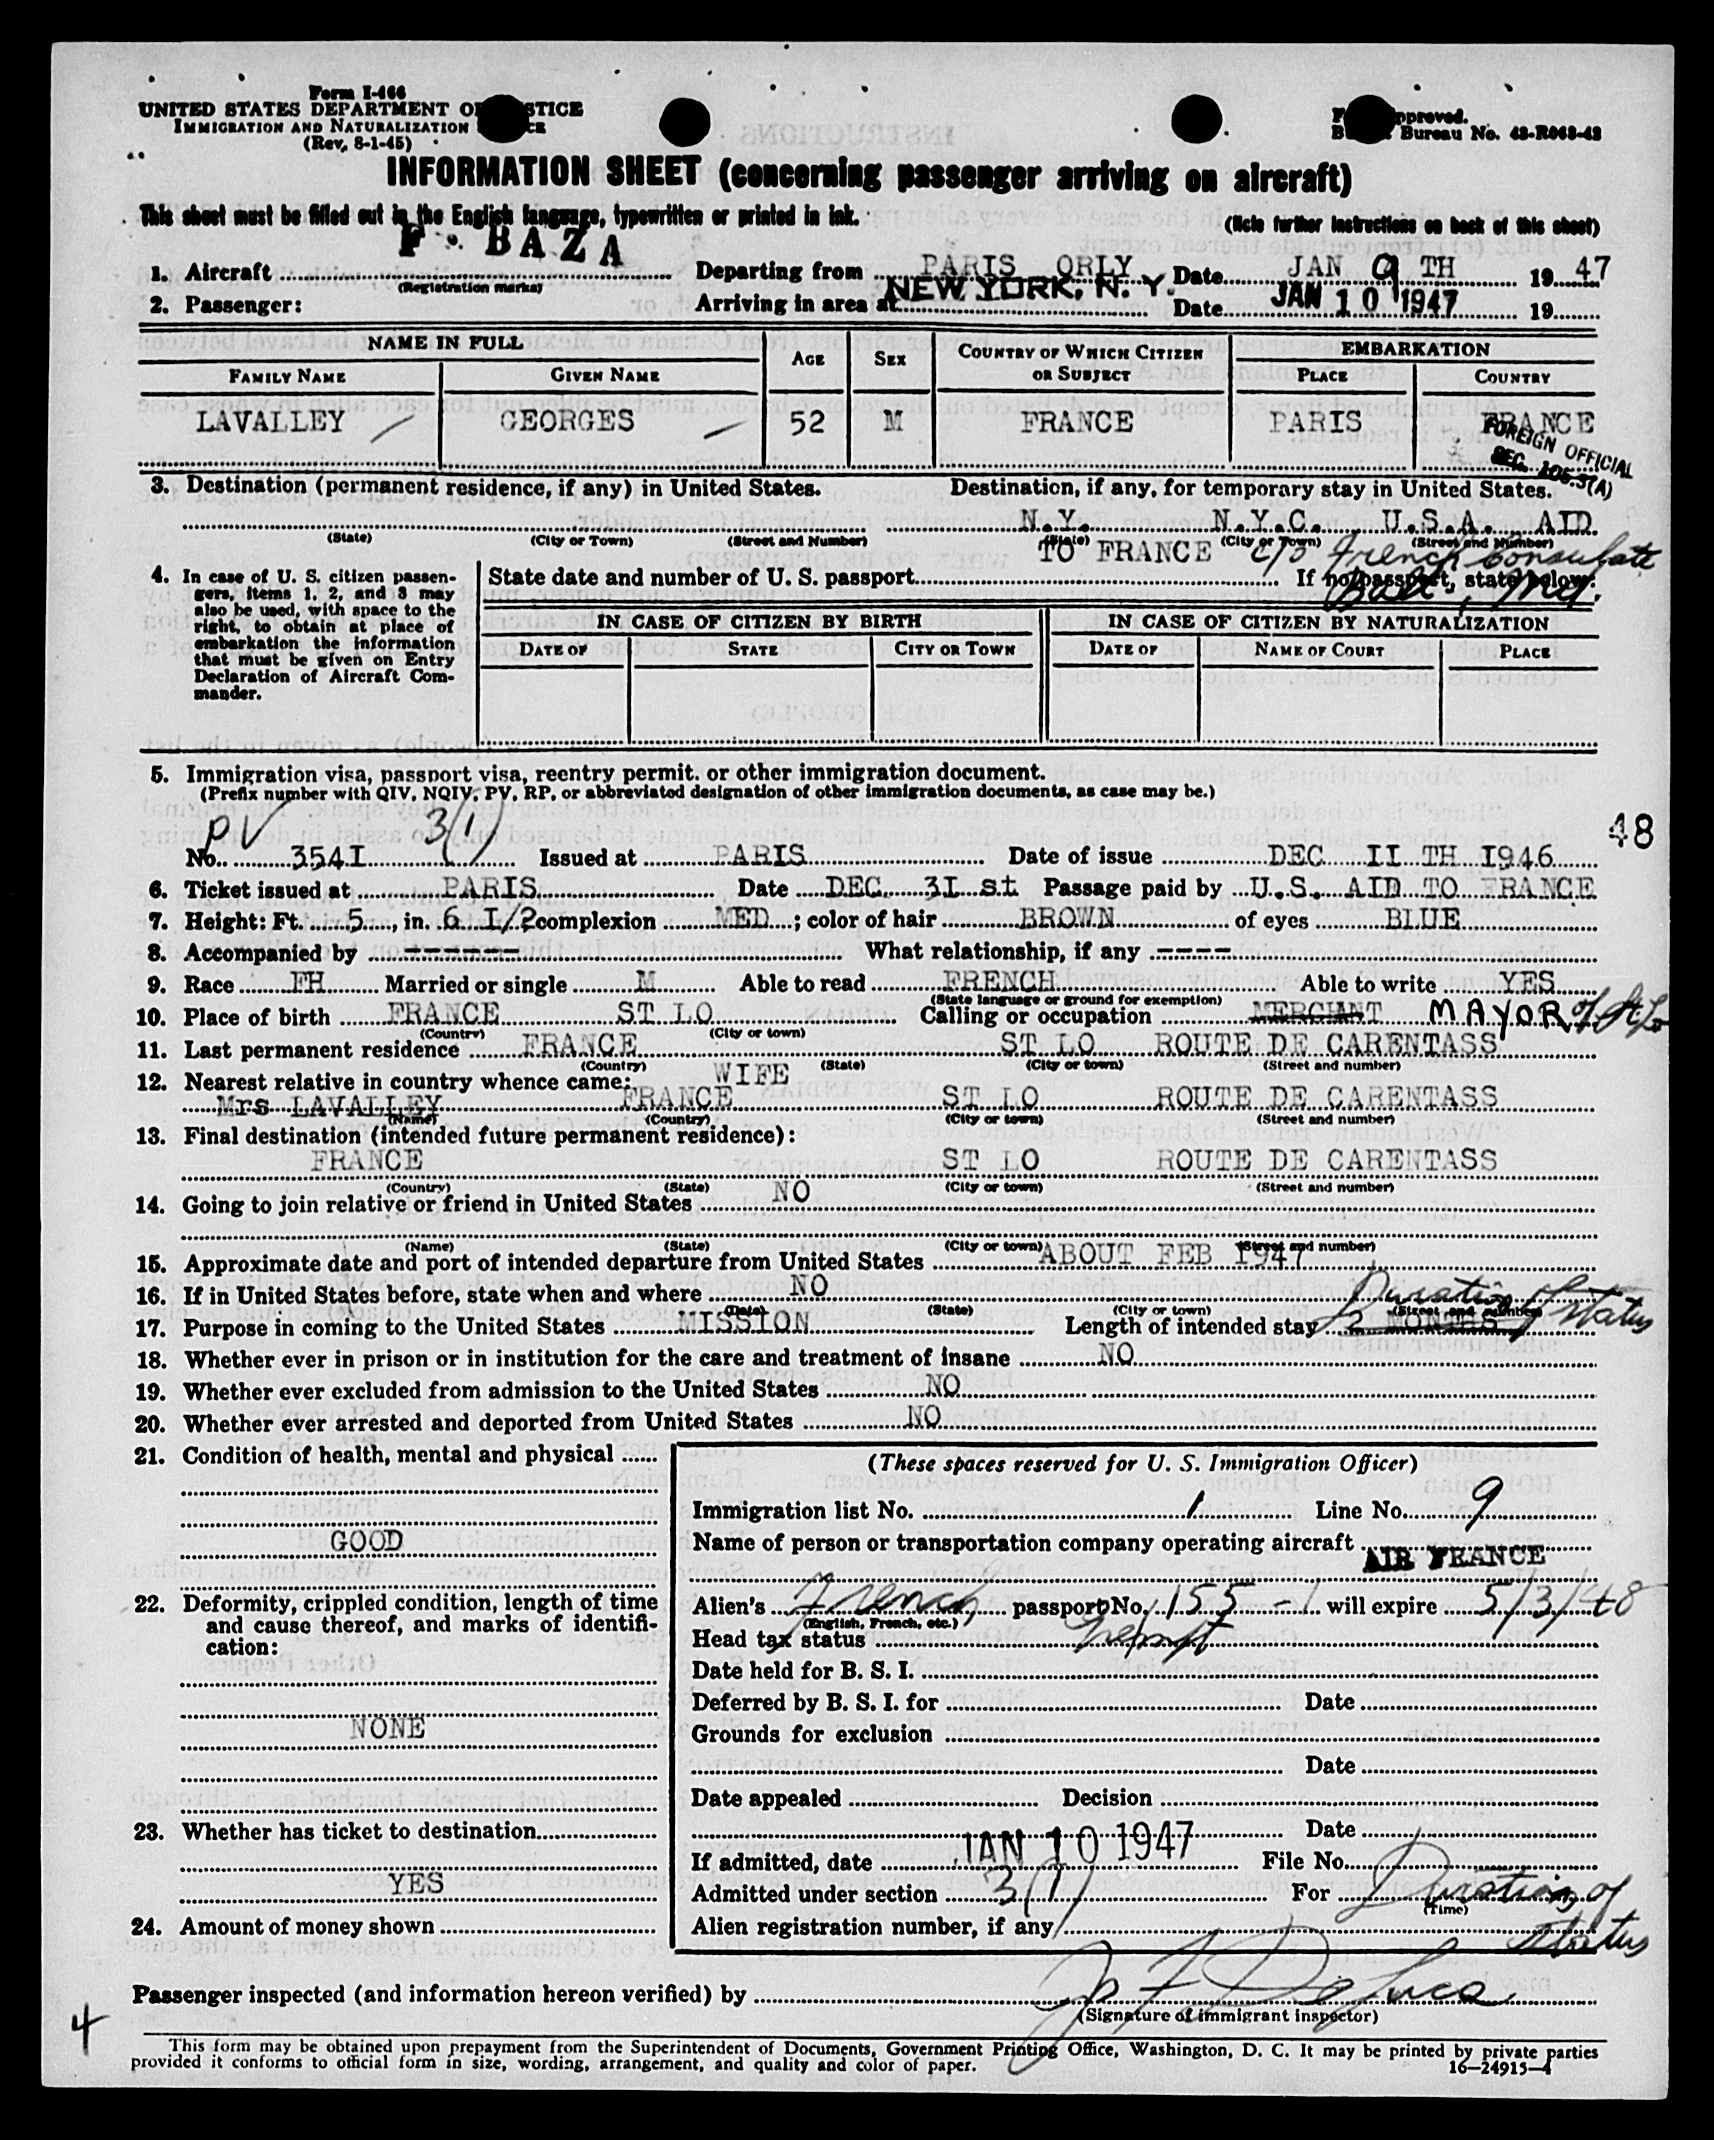 Form I-466
UNITED STATES DEPARTMENT OF JUSTICE
IMMIGRATION AND NATURALIZATION
(Rev. 8-1-45)
Approved.
Bureau No. 43-R068-42
INFORMATION SHEET (concerning passenger arriving on aircraft)
This sheet must be filled out in the English language, typewritten or printed in ink.
(Note further instructions on back of this sheet)
F. BAZA
1. Aircraft
(Registration marks)
Departing from PARIS ORLY Date JAN 9 TH 1947
2. Passenger:
Arriving in area at NEW YORK, N. Y. Date JAN 10 1947 19
NAME IN FULL AGE SEX COUNTRY OF WHICH CITIZEN OR SUBJECT EMBARKATION
FAMILY NAME GIVEN NAME PLACE COUNTRY
LAVALLEY GEORGES 52 M FRANCE PARIS FRANCE
FOREIGN OFFICIAL
SEC. 105.3(A)
3. Destination (permanent residence, if any) in United States. Destination, if any, for temporary stay in United States.
N.Y. N.Y.C. U.S.A. AID
(State) (City or Town) (Street and Number) (State) (City or Town) (Street and Number)
TO FRANCE c/o French Consulate
Balt., Md.
4. In case of U. S. citizen passengers, items 1, 2, and 3 may also be used, with space to the right, to obtain at place of embarkation the information that must be given on Entry Declaration of Aircraft Commander.
State date and number of U. S. passport If no passport, state below:
IN CASE OF CITIZEN BY BIRTH IN CASE OF CITIZEN BY NATURALIZATION
DATE OF STATE CITY OR TOWN DATE OF NAME OF COURT PLACE
5. Immigration visa, passport visa, reentry permit, or other immigration document.
(Prefix number with QIV, NQIV, PV, RP, or abbreviated designation of other immigration documents, as case may be.)
PV 3(1) 48
No. 354I Issued at PARIS Date of issue DEC II TH I946
6. Ticket issued at PARIS Date DEC 3I st Passage paid by U.S. AID TO FRANCE
7. Height: Ft. 5, in. 6 I/2 complexion MED; color of hair BROWN of eyes BLUE
8. Accompanied by ------- What relationship, if any ----
9. Race FH Married or single M Able to read FRENCH Able to write YES
(State language or ground for exemption)
10. Place of birth FRANCE ST LO Calling or occupation MERCHANT MAYOR of St Lo
(Country) (City or town)
11. Last permanent residence FRANCE ST LO ROUTE DE CARENTASS
(Country) (State) (City or town) (Street and number)
12. Nearest relative in country whence came: WIFE
Mrs LAVALLEY FRANCE ST LO ROUTE DE CARENTASS
(Name) (Country) (City or town) (Street and number)
13. Final destination (intended future permanent residence):
FRANCE ST LO ROUTE DE CARENTASS
(Country) (State) (City or town) (Street and number)
14. Going to join relative or friend in United States NO
(Name) (State) (City or town) (Street and number)
15. Approximate date and port of intended departure from United States ABOUT FEB 1947
16. If in United States before, state when and where NO
(Date) (State) (City or town) (Street and number)
17. Purpose in coming to the United States MISSION Length of intended stay 2 MONTHS Duration of Status
18. Whether ever in prison or in institution for the care and treatment of insane NO
19. Whether ever excluded from admission to the United States NO
20. Whether ever arrested and deported from United States NO
21. Condition of health, mental and physical
GOOD
22. Deformity, crippled condition, length of time and cause thereof, and marks of identification:
NONE
23. Whether has ticket to destination
YES
24. Amount of money shown
(These spaces reserved for U. S. Immigration Officer)
Immigration list No. 1 Line No. 9
Name of person or transportation company operating aircraft
AIR FRANCE
Alien's French passport No. 155-1 will expire 5/3/48
(English, French, etc.)
Head tax status Exempt
Date held for B. S. I.
Deferred by B. S. I. for Date
Grounds for exclusion
Date
Date appealed Decision
Date
If admitted, date JAN 10 1947 File No.
Admitted under section 3(1) For Duration of Status
(Time)
Alien registration number, if any
Passenger inspected (and information hereon verified) by
(Signature of immigrant inspector)
4
This form may be obtained upon prepayment from the Superintendent of Documents, Government Printing Office, Washington, D. C. It may be printed by private parties
provided it conforms to official form in size, wording, arrangement, and quality and color of paper.
16—24915-4